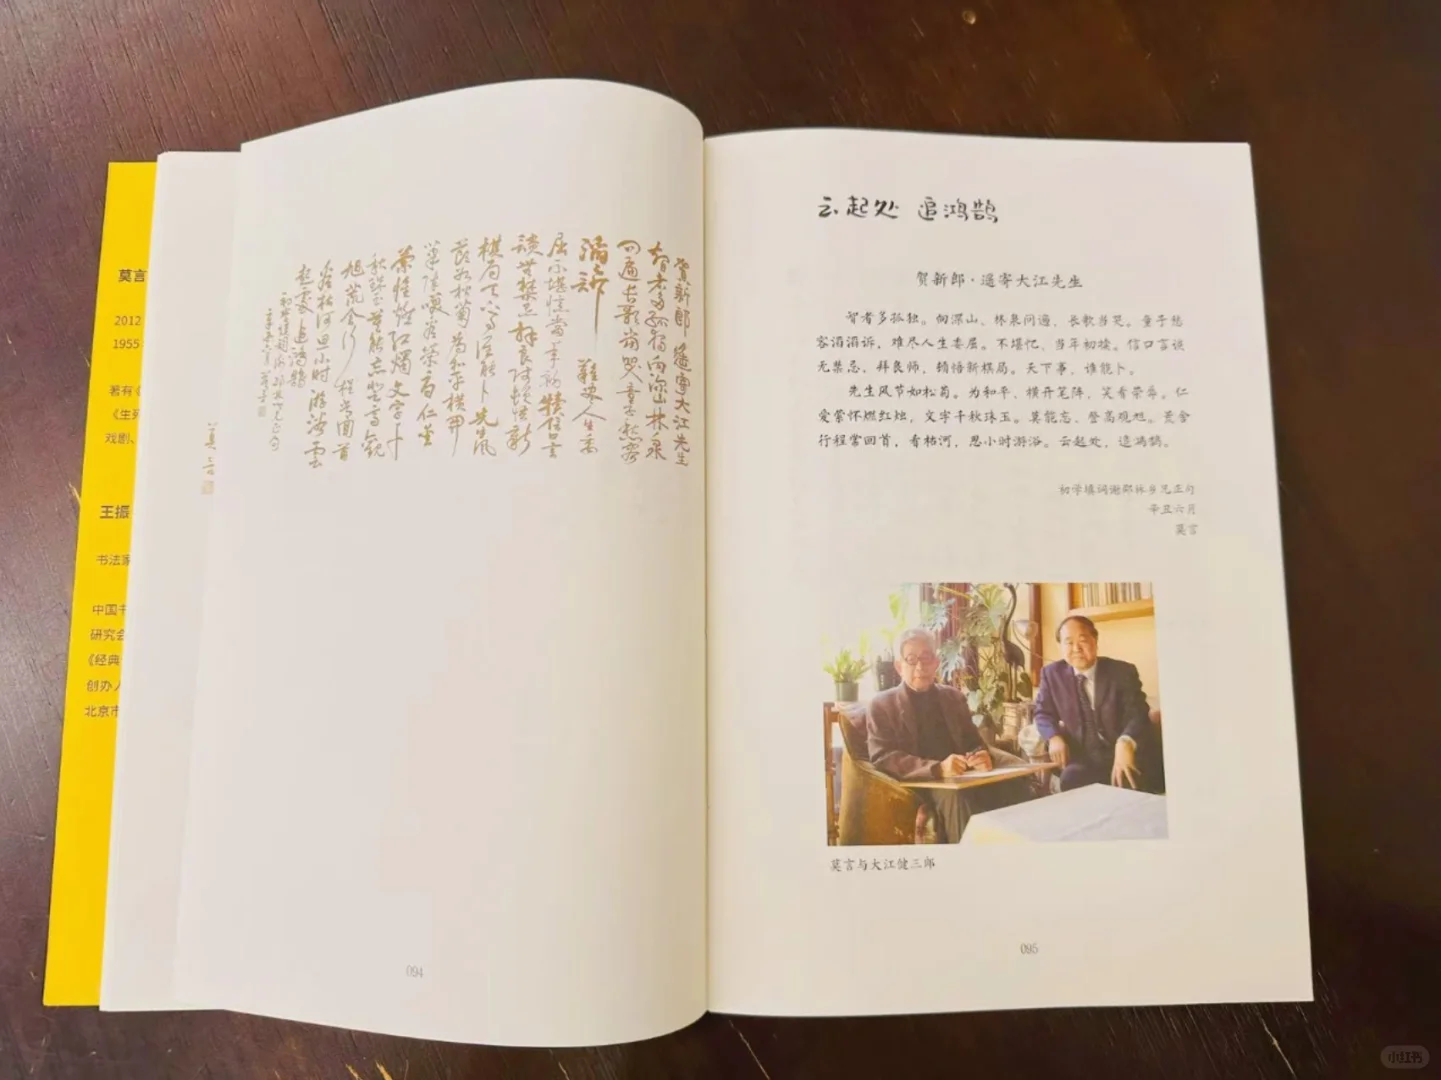 莫言
2012
1955
著有《
《生死
戏剧、
王振
书法家
中国书
研究会
《经典
创办人
北京市
莫言
贺新郎 遥寄大江先生
智者多孤独向深山林泉
问遍长歌当哭童子愁容
涓涓诉 难尽人生委
屈不堪忆当年初犊信口言
谈无禁忌拜良师顿悟新
棋局天下事谁能卜先生风
节如松菊为和平横开
笔阵笑看荣辱仁爱
萦怀燃红烛文字千
秋珠玉莫能忘登高观
旭荒舍行程常回首
看枯河思小时游浴云
起处追鸿鹄
094
云起处 追鸿鹄
贺新郎·遥寄大江先生
智者多孤独。向深山、林泉问遍,长歌当哭。童子愁
容涓涓诉,难尽人生委屈。不堪忆、当年初犊。信口言谈
无禁忌,拜良师、顿悟新棋局。天下事,谁能卜。
先生风节如松菊。为和平、横开笔阵,笑看荣辱。仁
爱萦怀燃红烛,文字千秋珠玉。莫能忘、登高观旭。荒舍
行程常回首,看枯河、思小时游浴。云起处,追鸿鹄。
初学填词谢邵林乡兄正句
辛丑六月
莫言
莫言与大江健三郎
095
小红书